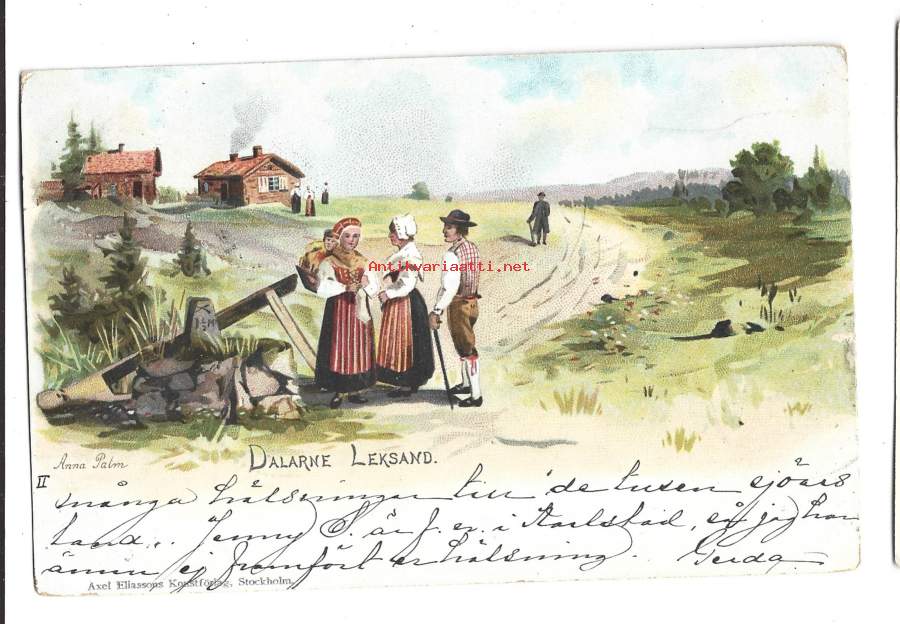 Antikvariaatti.net
1/2 M
DALARNE LEKSAND.
Anna Palm
II
många hälsningar till de tusen sjöars
land. Jenny S. är f. n. i Karlstad, så jag har
ännu ej framfört er hälsning. Gerda
Axel Eliassons Konstförlag, Stockholm